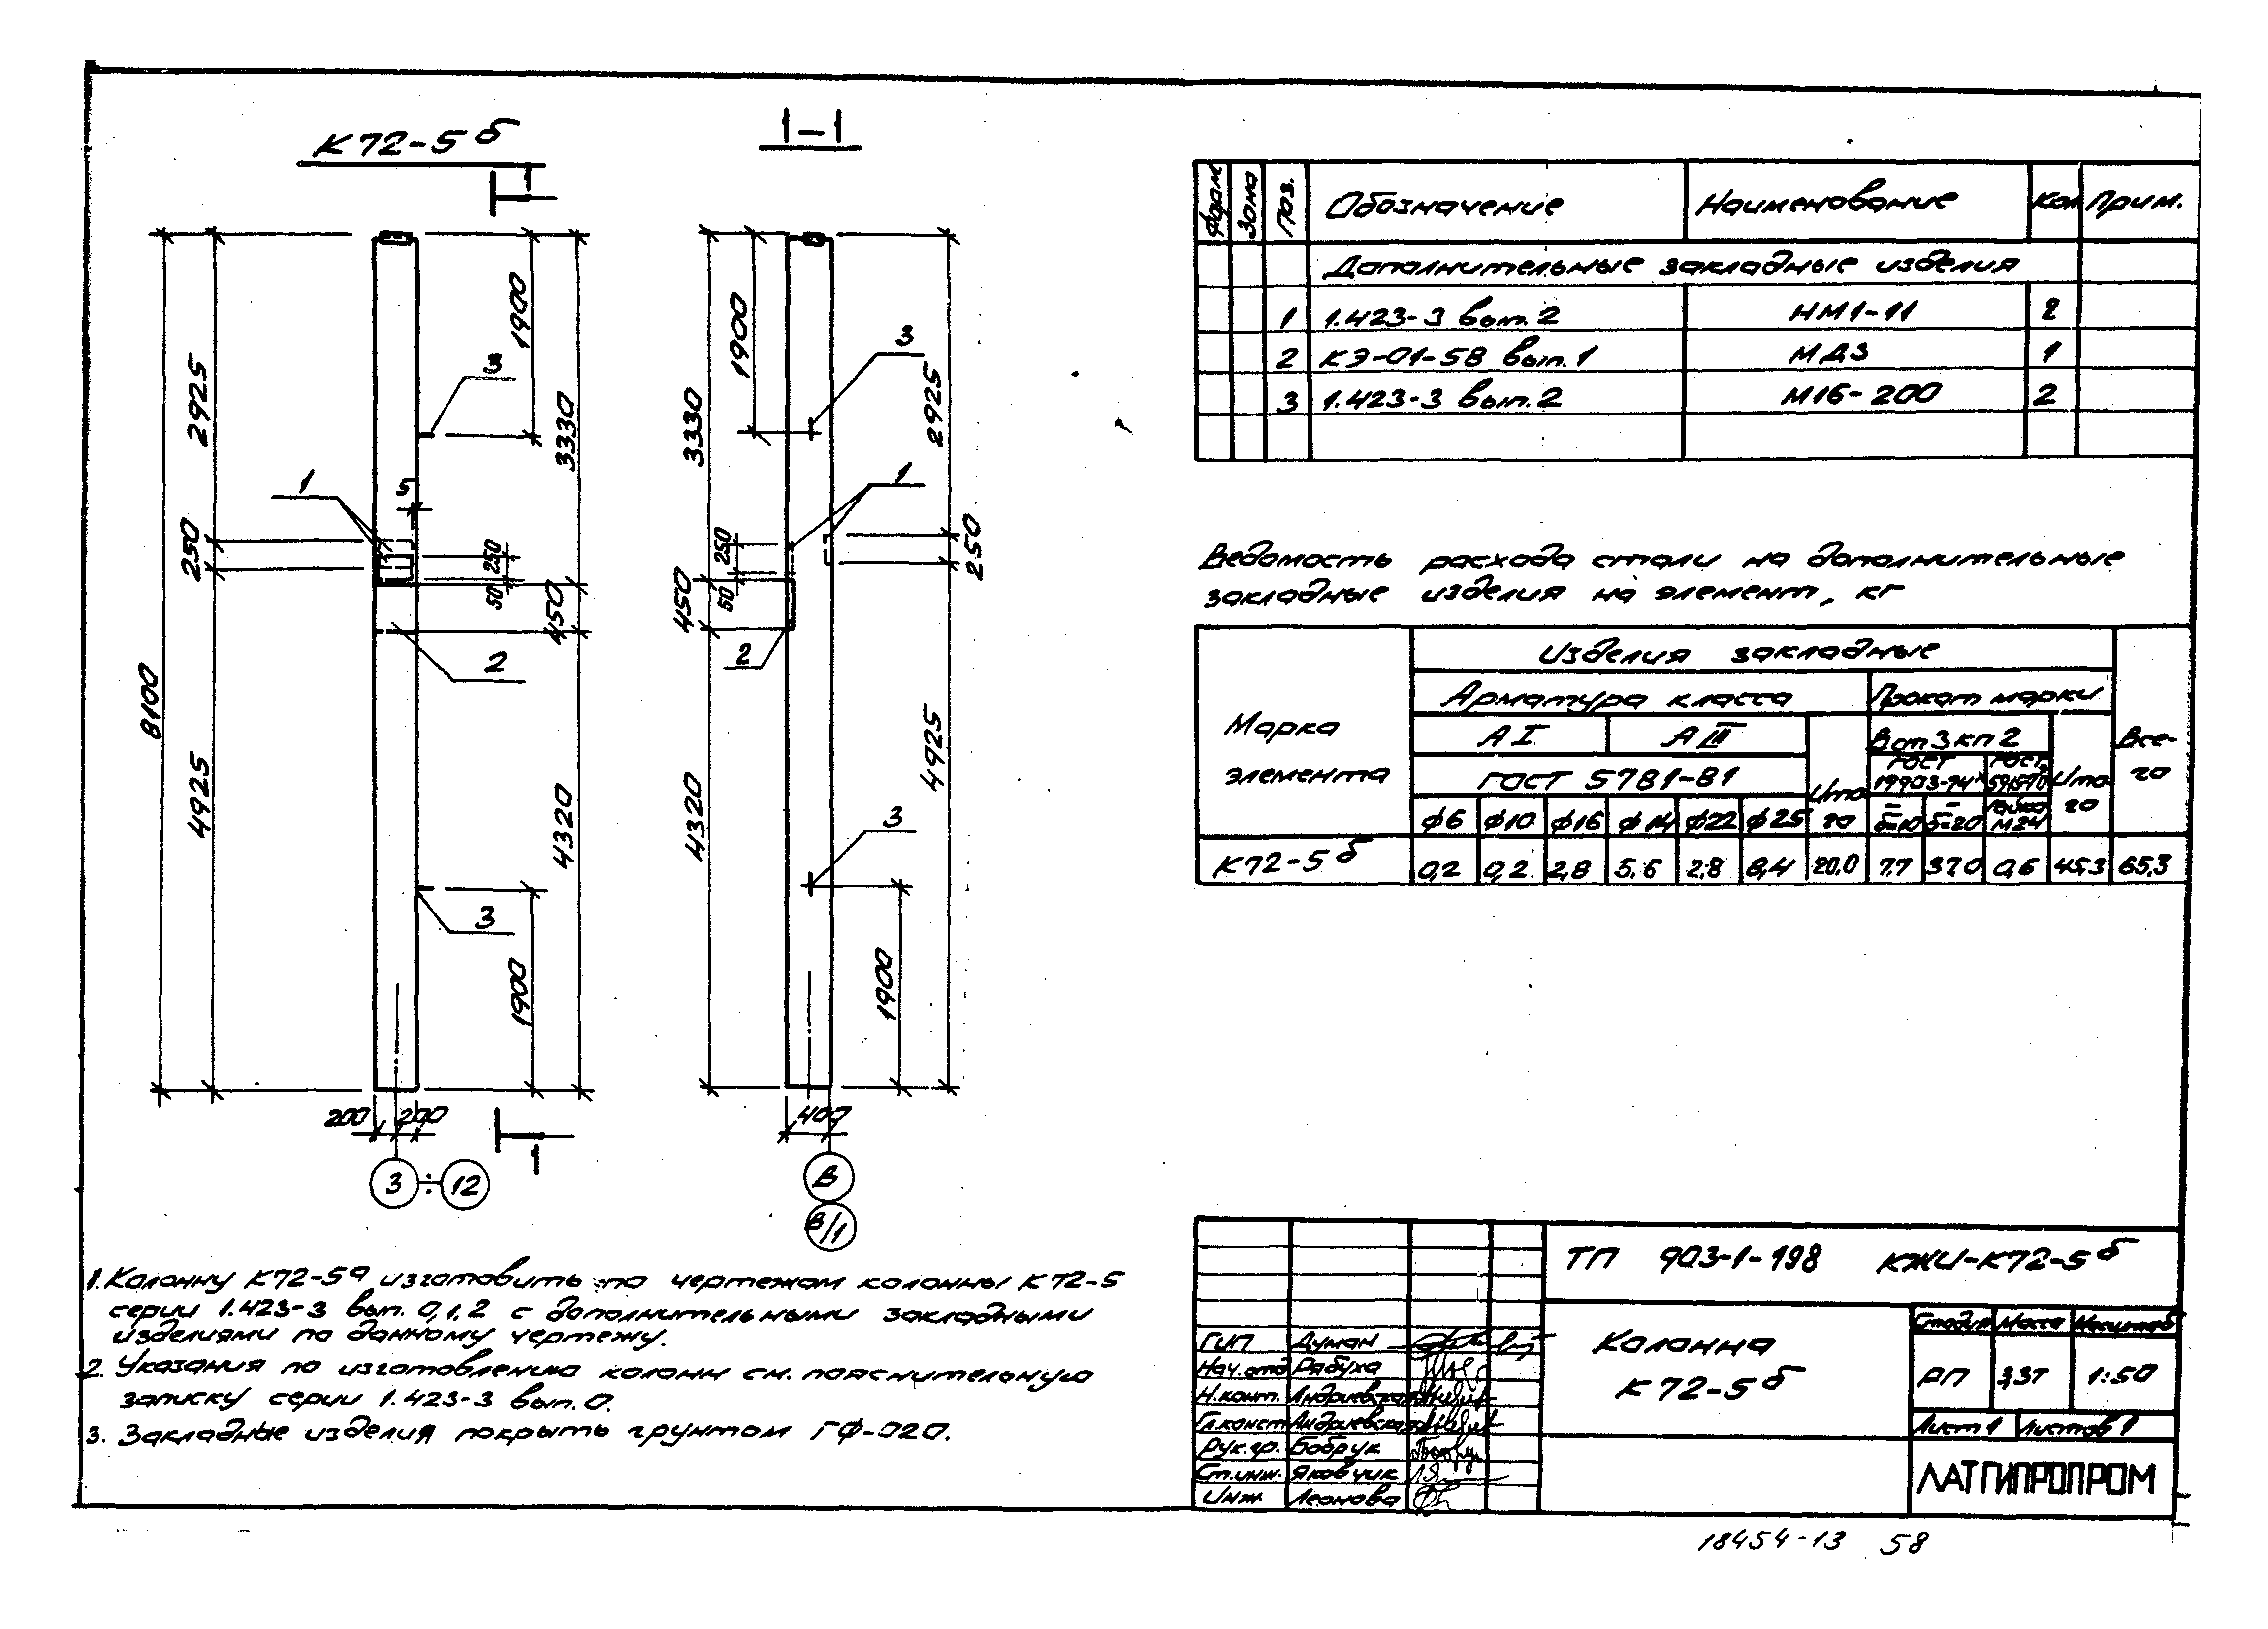 К72-5б
1-1
1
8100
2925
250
4925
1900
3330
450
4320
1900
250
50
5
1
2
3
3
200
200
3÷12
1
3330
450
4320
1900
250
50
2925
250
4925
1900
3
1
2
3
400
В
В/1
1. Колонну К72-5а изготовить по чертежам колонны К72-5
серии 1.423-3 вып. 0,1,2 с дополнительными закладными
изделиями по данному чертежу.
2. Указания по изготовлению колонн см. пояснительную
записку серии 1.423-3 вып.0.
3. Закладные изделия покрыть грунтом ГФ-020.
Форм. Зона Поз. Обозначение Наименование Кол. Прим.
Дополнительные закладные изделия
1 1.423-3 вып.2 НМ1-11 2
2 КЭ-01-58 вып.1 МД3 1
3 1.423-3 вып.2 М16-200 2
Ведомость расхода стали на дополнительные
закладные изделия на элемент, кг
Марка элемента
Изделия закладные
Все-го
Арматура класса Прокат марки
А I А III Ито-го Вст3кп2 Ито-го
ГОСТ 5781-81 ГОСТ 19903-74* ГОСТ
ф6 ф10 ф16 ф14 ф22 ф25 δ=10 δ=20 гайка М24
К72-5б 0,2 0,2 2,8 5,6 2,8 8,4 20,0 7,7 37,0 0,6 45,3 65,3
ТП 903-1-198 КЖИ-К72-5б
Колонна
К72-5б
Стадия Масса Масштаб
РП 3,3т 1:50
Лист 1 Листов 1
ЛАТГИПРОПРОМ
ГИП Думан
Нач.отд Рябуха
Н.конт. Андриевская
Гл.конст Андриевская
Рук.гр. Бобрук
Ст.инж. Яковчик
Инж. Леонова
18454-13 58